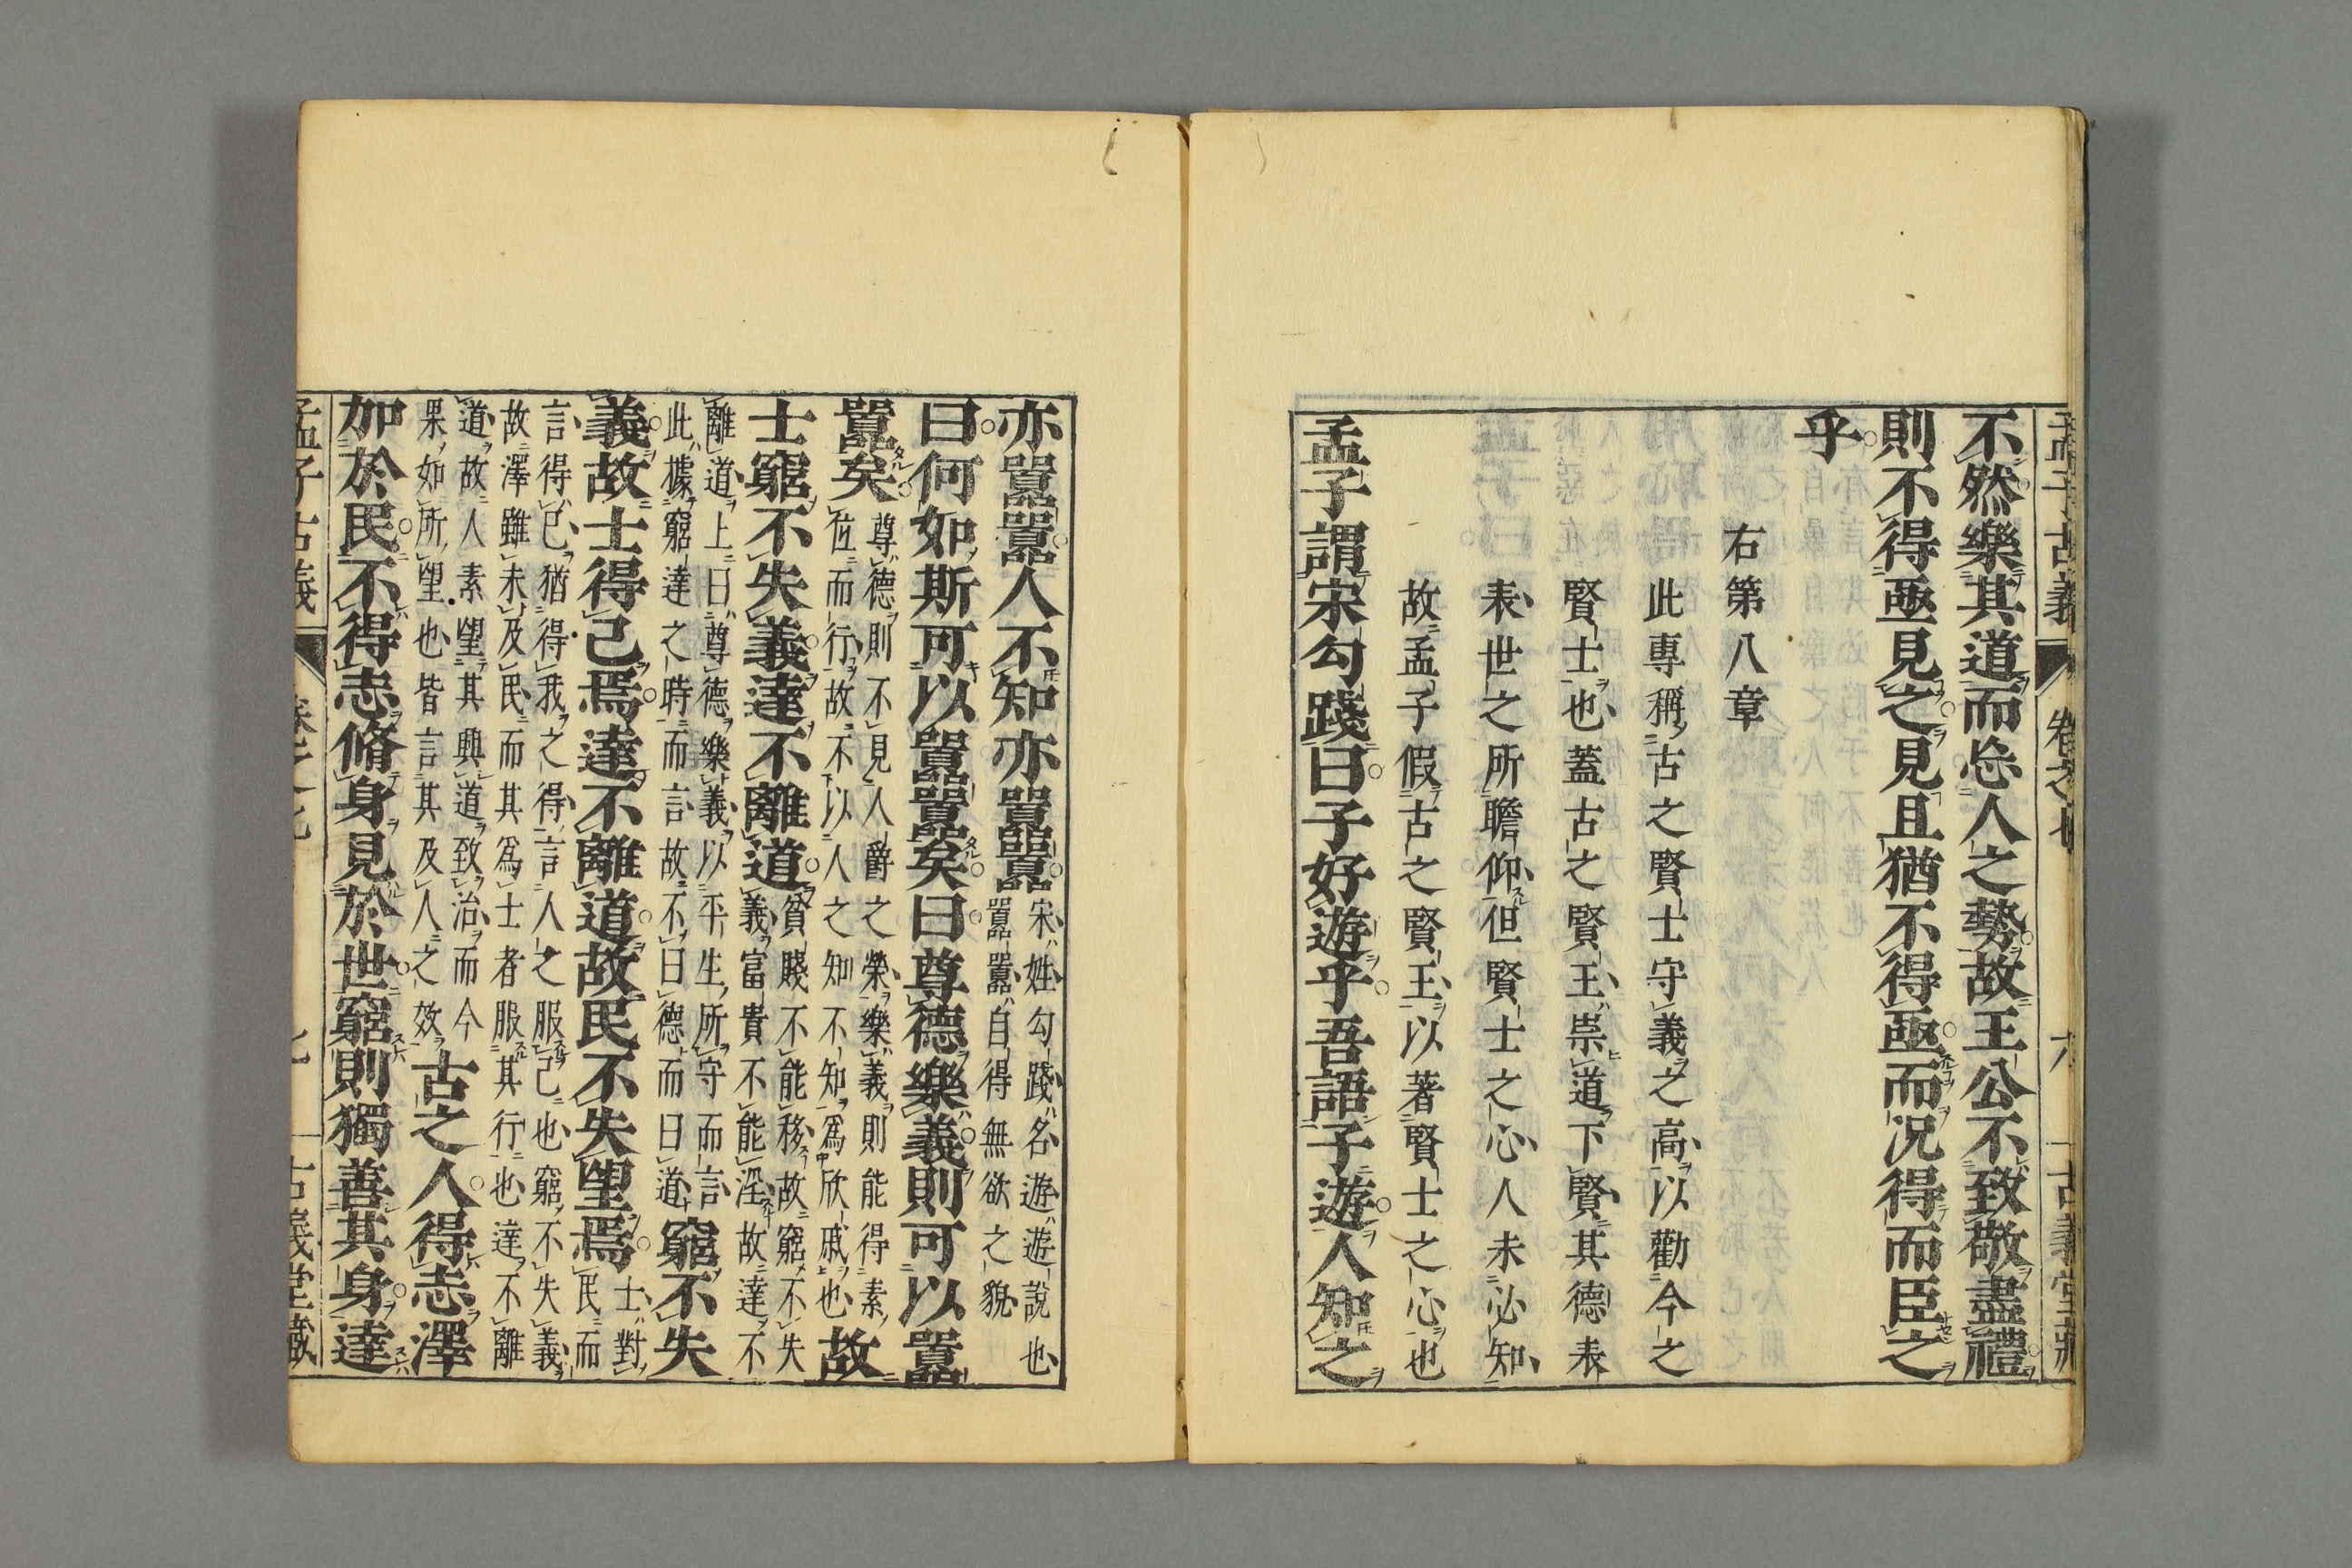 孟子古義 卷之七 六 古義堂藏
不然樂其道而忘人之勢故王公不致敬盡禮
則不得亟見之見且猶不得亟而况得而臣之
乎
右第八章
此專稱古之賢士守義之高以勸今之
賢士也蓋古之賢王崇道下賢其德表
表世之所瞻仰但賢士之心人未必知
故孟子假古之賢王以著賢士之心也
孟子謂宋勾踐曰子好遊乎吾語子遊人知之
亦囂囂人不知亦囂囂
宋姓勾踐名遊遊說也
囂囂自得無欲之貌
曰何如斯可以囂囂矣曰尊德樂義則可以囂
囂矣
尊德則不見人爵之榮樂義則能得素
位而行故不以人之知不知爲欣戚也
故
士窮不失義達不離道
貧賤不能移故窮不失
義富貴不能淫故達不
離道上曰尊德樂義以平生所守而言
此據窮達之時而言故不曰德而曰道
窮不失
義故士得己焉達不離道故民不失望焉
士對
民而
言得己猶得我之得言人之服己也窮不失義
故澤雖未及民而其爲士者服其行也達不離
道故人素望其興道致治而今
果如所望也皆言其及人之效
古之人得志澤
加於民不得志脩身見於世窮則獨善其身達
孟子古義 卷之七 七 古義堂藏